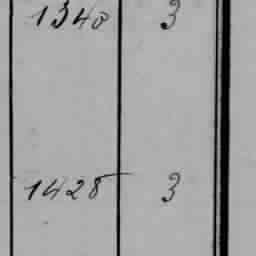 1340 3
1428 3